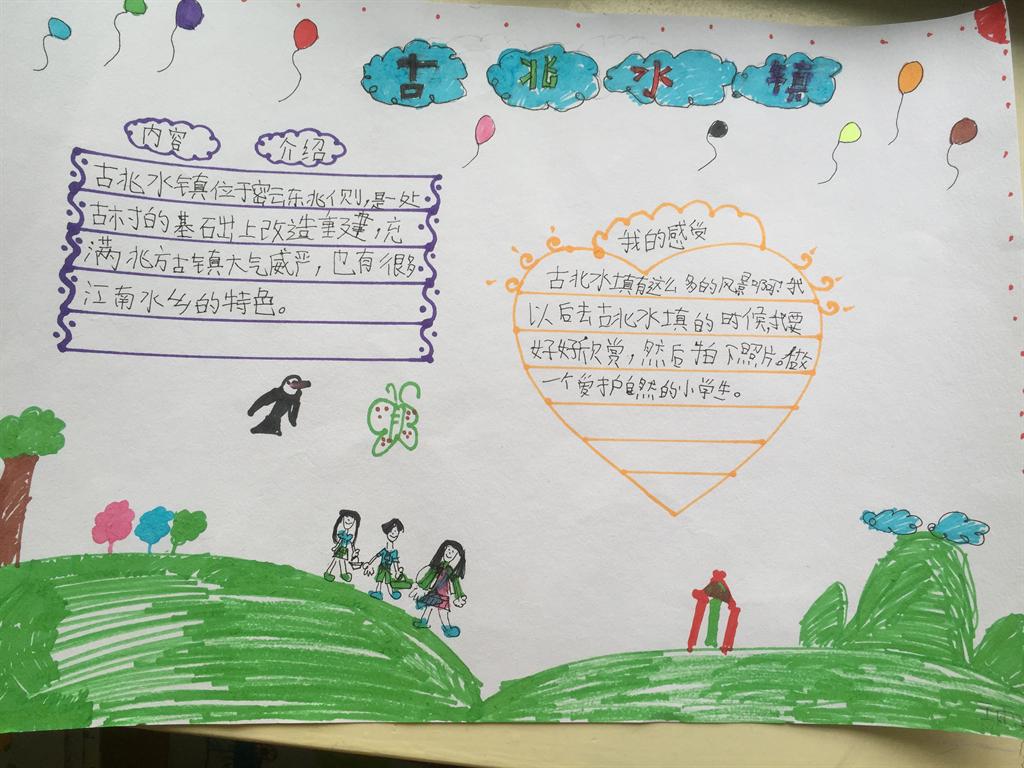 古北水镇
内容 介绍
古北水镇位于密云东北侧,是一处
古村的基石出上改造重建,充
满北方古镇大气威严,也有很多
江南水乡的特色。
我的感受
古北水填有这么多的风景啊!我
以后去古北水填的时候,我要
好好欣赏,然后拍下照片。做
一个爱护自然的小学生。